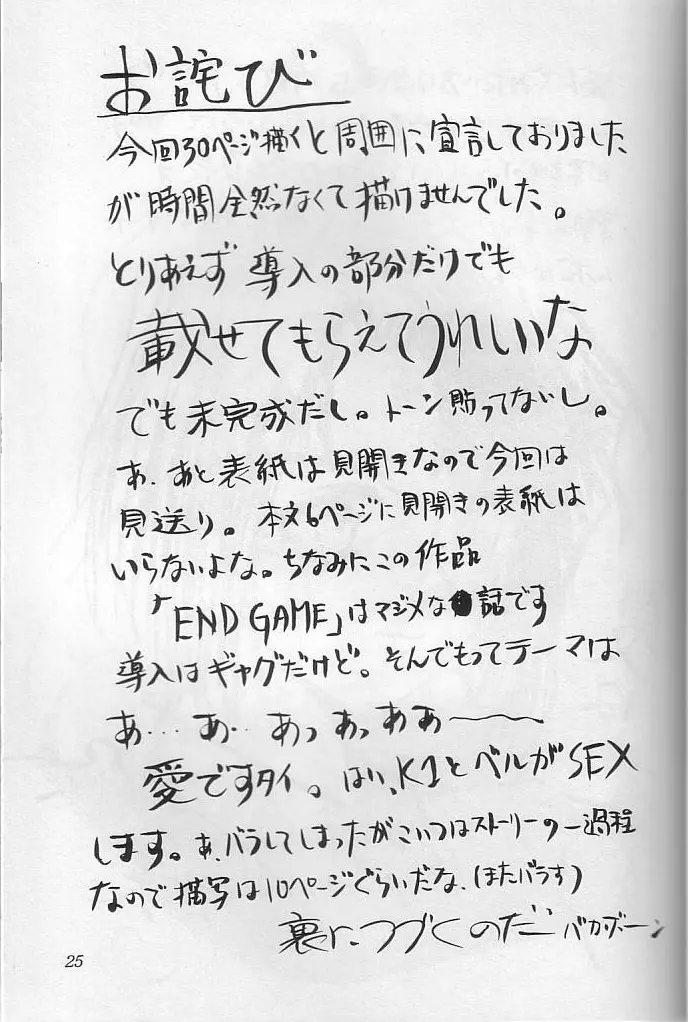 お詫び
今回30ページ描くと周囲に宣言しておりました
が時間全然なくて描けませんでした。
とりあえず導入の部分だけでも
載せてもらえてうれしいな
でも未完成だし。トーン貼ってないし。
あ、あと表紙は見開きなので今回は
見送り。本文6ページに見開きの表紙は
いらないよな。ちなみにこの作品
「END GAME」はマジメな話です
導入はギャグだけど。そんでもってテーマは
あ…あ‥あっあっああ〜
愛ですタイ。はい、K1とベルがSEX
します。あ、バラしてしまったがこいつはストーリーの一過程
なので描写は10ページぐらいだな、(またバラす)
裏につづくのだ バカボーン
25